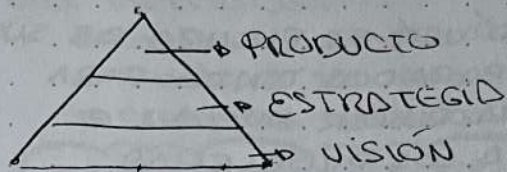 PRODUCTO
ESTRATEGIA
VISIÓN